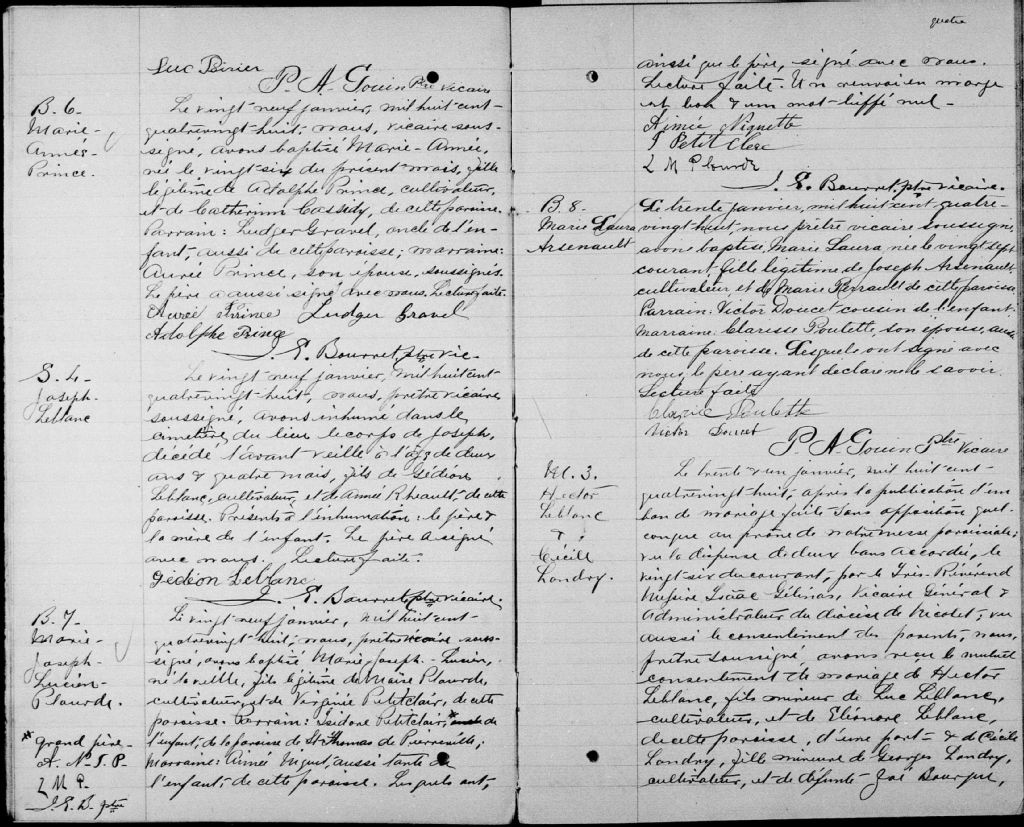 Luc Poirier
P. A. Gouin Ptre Vicaire
B. 6-
Marie-
Année-
Prince.
Le vingt neuf janvier, mil huit cent-
quatrevingt-huit, nous, vicaire sous-
signé, avons baptisé Marie-Année,
née le vingt-six du présent mois, fille
légitime de Adolphe Prince, cultivateur,
et de Catherine Cassidy, de cette paroisse.
Parrain: Ludger Gravel, oncle de l'en-
fant, aussi de cette paroisse; marraine:
Aurée Prince, son épouse, soussignés.
Le père a aussi signé avec nous. Lecture faite.
Aurée Prince Ludger Gravel
Adolphe Prince
J. E. Bourret, ptre vic-
S. 4-
Joseph-
Leblanc
Le vingt neuf janvier, mil huit cent-
quatrevingt-huit, nous, prêtre vicaire
soussigné, avons inhumé dans le
cimetière du lieu le corps de Joseph,
décédé l'avant veille à l'âge de deux
ans & quatre mois, fils de Gédéon
Leblanc, cultivateur, et de Année Rheault de cette
paroisse. Présents à l'inhumation: le père &
la mère de l'enfant. Le père a signé
avec nous. Lecture faite.
Gédéon Leblanc
J. E. Bourret, ptre vicaire.
B. 7-
Marie-
Joseph-
Lucien-
Plourde.
Le vingt neuf janvier, mil huit cent-
quatrevingt-huit, nous, prêtre vicaire sous-
signé, avons baptisé Marie-Joseph-Lucien,
né la veille, fils légitime de Moïse Plourde,
cultivateur, et de Virginie Petitclair, de cette
paroisse. Parrain: Isidore Petitclair, *
l'enfant, de la paroisse de St Thomas de Pierreville;
marraine: Aimée Niquet, aussi tante de
l'enfant, de cette paroisse. Lesquels ont,
* grand père-
A. N. I. P.
L M P.
J. E. B. ptre
quatre
ainsi que le père, signé avec nous.
Lecture faite. Un renvoi en marge
est bon & un mot biffé nul-
Aimée Niquette
I Petit Clerc
L M Plourde
J. E. Bourret, ptre vicaire.
B. 8.
Marie Laura
Arsenault
Le trente janvier, mil huit cent quatre-
vingt huit, nous prêtre vicaire soussigné,
avons baptisé, Marie Laura, née le vingt sept
courant, fille légitime de Joseph Arsenault
cultivateur et de Marie Perrault de cette paroisse
Parrain: Victor Doucet cousin de l'enfant.
Marraine: Clarisse Poulette, son épouse, aussi
de cette paroisse. Lesquels ont signé avec
nous, le père ayant déclaré ne le savoir.
Lecture faite
Clarice Poulette
Victor Doucet
P. A. Gouin Ptre Vicaire
M. 3.
Hector
Leblanc
&
Cécile
Landry.
Le trente & un janvier, mil huit cent-
quatrevingt-huit, après la publication d'un
ban de mariage faite sans opposition quel-
conque au prône de notre messe paroissiale;
vu la dispense de deux bans accordée, le
vingt-six du courant, par le Très-Révérend
Messire Isaac Gélinas, Vicaire Général &
Administrateur du diocèse de Nicolet; vu
aussi le consentement des parents, nous,
prêtre soussigné, avons reçu le mutuel
consentement de mariage de Hector
Leblanc, fils mineur de Luc Leblanc,
cultivateur, et de Eléonore Leblanc,
de cette paroisse, d'une part- & de Cécile
Landry, fille mineure de Georges Landry,
cultivateur, et de défunte Zoé Bourque,